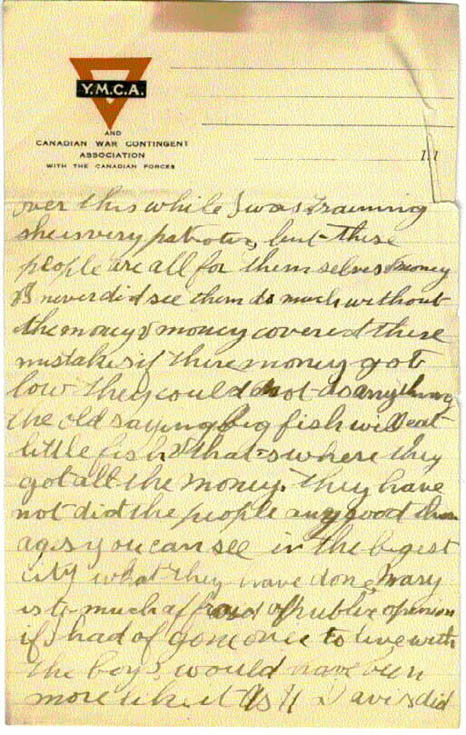 Y.M.C.A.
AND
CANADIAN WAR CONTINGENT
ASSOCIATION
WITH THE CANADIAN FORCES
11
over this while I was training
she is very patrotic, but these
people are all for themselves & money
I never did see them do much without
the money & money covered there
mistakes if there money got
low they could not do anything
the old saying big fish will eat
little fish that's where they
got all the money. they have
not did the people any good
ages you can see in the bigest
city what they have done, mary
is to much affraid of public opinion
if I had of gone once to live with
the boys would have been
more like it As Davis did